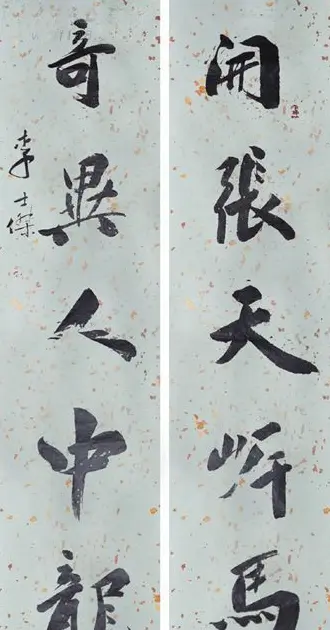 開張天岸馬
奇異人中龍
李士傑